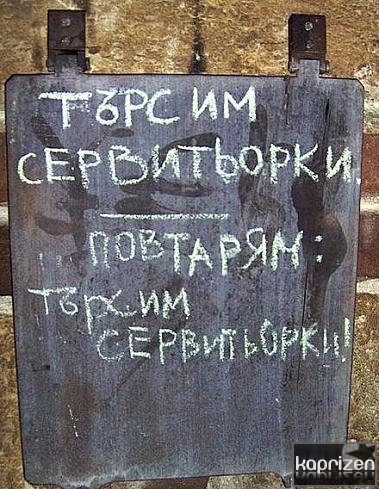 ТЪРСИМ
СЕРВИТЬОРКИ
ПОВТАРЯМ:
ТЪРХ.ИМ
СЕРВИТЬОРКИ!
kaprizen